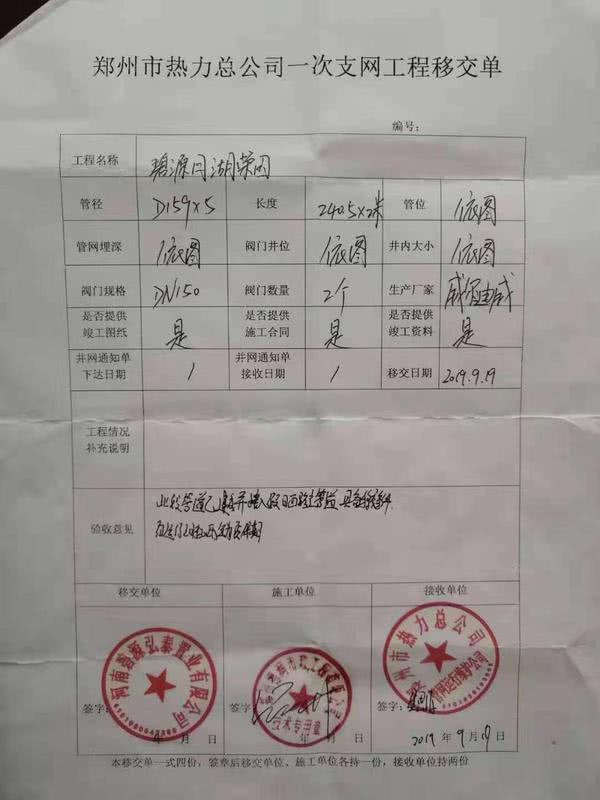 郑州市热力总公司一次支网工程移交单
编号：
工程名称 碧源月湖荣园
管径 D159×5 长度 240.5×2米 管位 依图
管网埋深 依图 阀门井位 依图 井内大小 依图
阀门规格 DN150 阀门数量 2个 生产厂家
是否提供竣工图纸 是 是否提供施工合同 是 是否提供竣工资料 是
并网通知单下达日期 / 并网通知单接收日期 / 移交日期 2019.9.19
工程情况补充说明
验收意见 此段管道已
移交单位 施工单位 接收单位
河南碧源弘泰置业有限公司
技术专用章
郑州市热力总公司
签字： 年 月 日 签字： 年 月 日 签字： 2019年9月19日
本移交单一式四份，签章后移交单位、施工单位各持一份，接收单位持两份